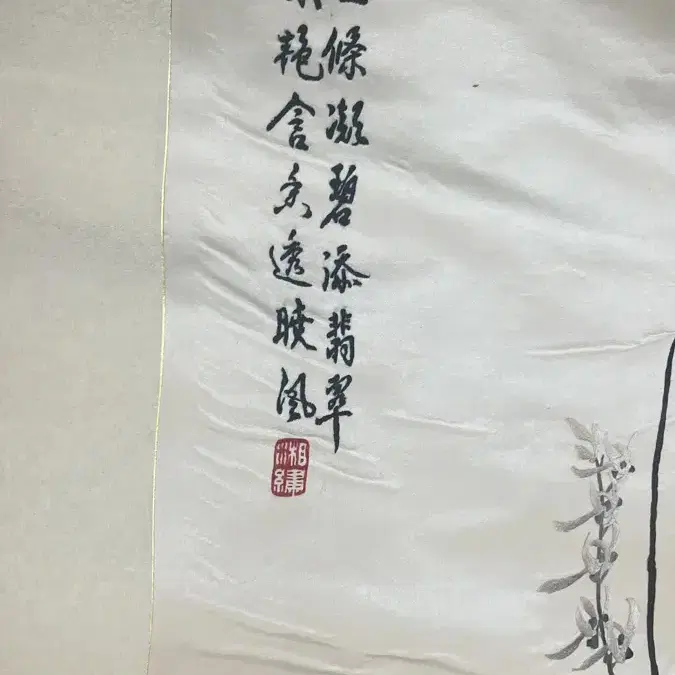 條凝碧添翡翠
艳含香透曉風
湘繡